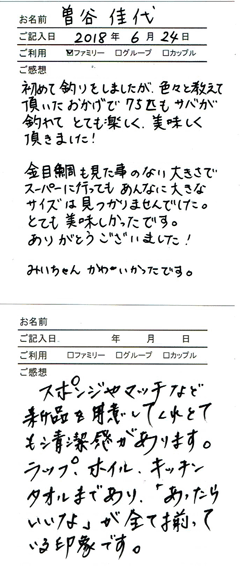 お名前 曽谷 佳代
ご記入日 2018年 6月 24日
ご利用 ☑ファミリー □グループ □カップル
ご感想
初めて釣りをしましたが、色々と教えて
頂いたおかげで 75匹も サバが
釣れて とても楽しく、美味しく
頂きました!
金目鯛も見た事のない大きさで
スーパーに行っても あんなに大きな
サイズは見つかりませんでした。
とても 美味しかったです。
ありがとうございました!
みぃちゃん かわいかったです。
お名前
ご記入日. 年 月 日
ご利用 □ファミリー □グループ □カップル
ご感想
スポンジやマッチなど
新品を用意してくれとて
も清潔感があります。
ラップ、ホイル、キッチン
タオルまであり、「あったら
いいな」が全て揃って
いる印象です。